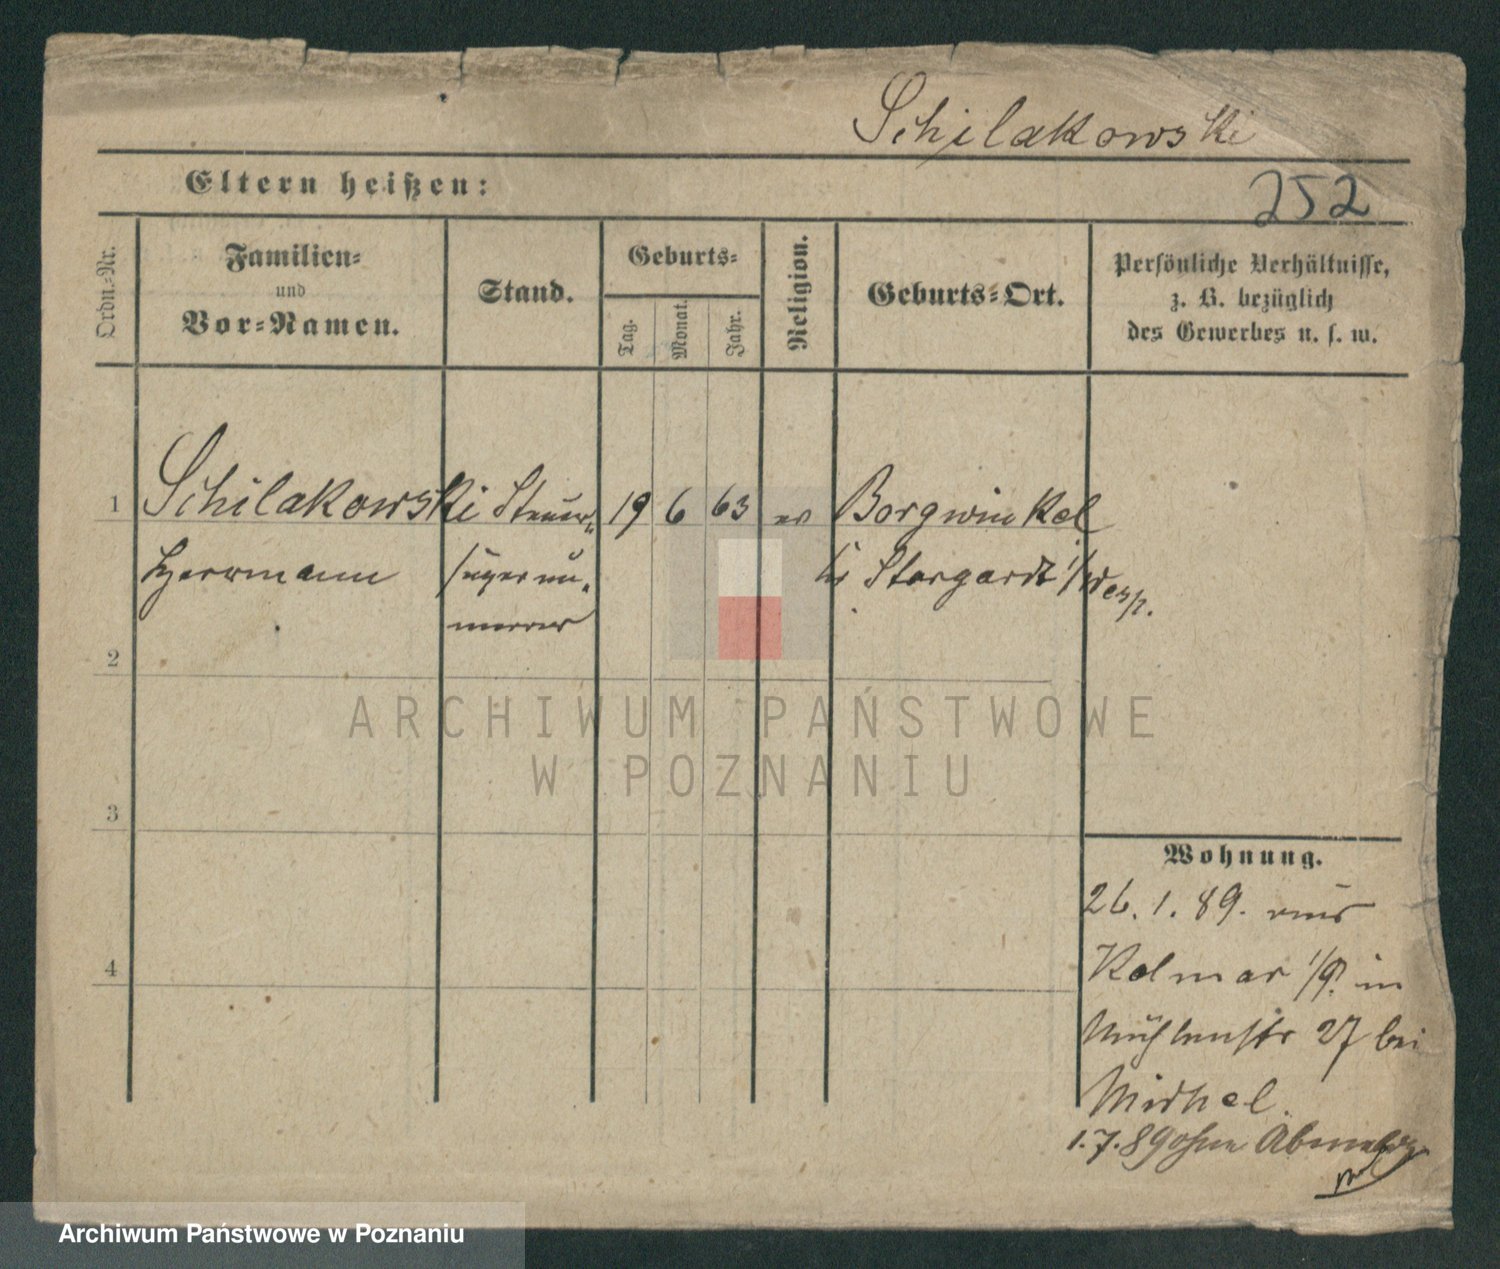 Schilakowski
Eltern heißen:
252
Ordn.-Nr.
Familien-
und
Vor-Namen.
Stand.
Geburts-
Tag.
Monat.
Jahr.
Religion.
Geburts-Ort.
Persönliche Verhältnisse,
z. B. bezüglich
des Gewerbes u. s. w.
1 Schilakowski Steuer- 19 6 63 ev Borgwinkel
Herrmann supernu- Kr Stargardt i/Wesp.
merar
2
3
4
Wohnung.
26. 1. 89. aus
Kolmar i/P. in
Mühlenstr 27 bei
Michel.
1.7.89 ohne Abmeldg
ARCHIWUM PAŃSTWOWE
W POZNANIU
Archiwum Państwowe w Poznaniu